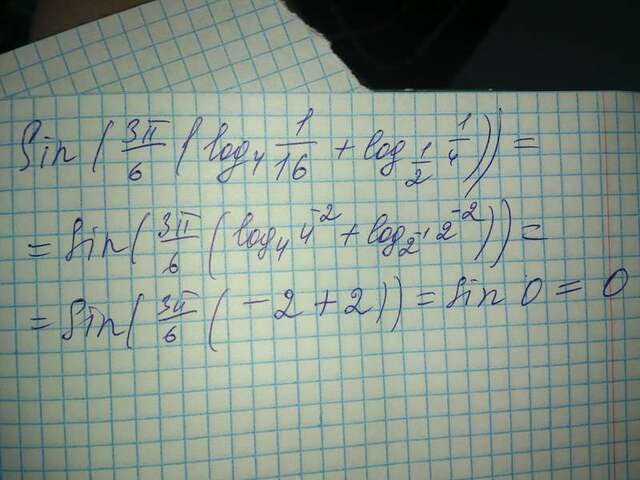 Sin(3π/6(log₄ 1/16 + log_{1/2} 1/4)) =
= Sin(3π/6(log₄ 4⁻² + log_{2⁻¹} 2⁻²)) =
= Sin(3π/6(−2+2)) = Sin 0 = 0